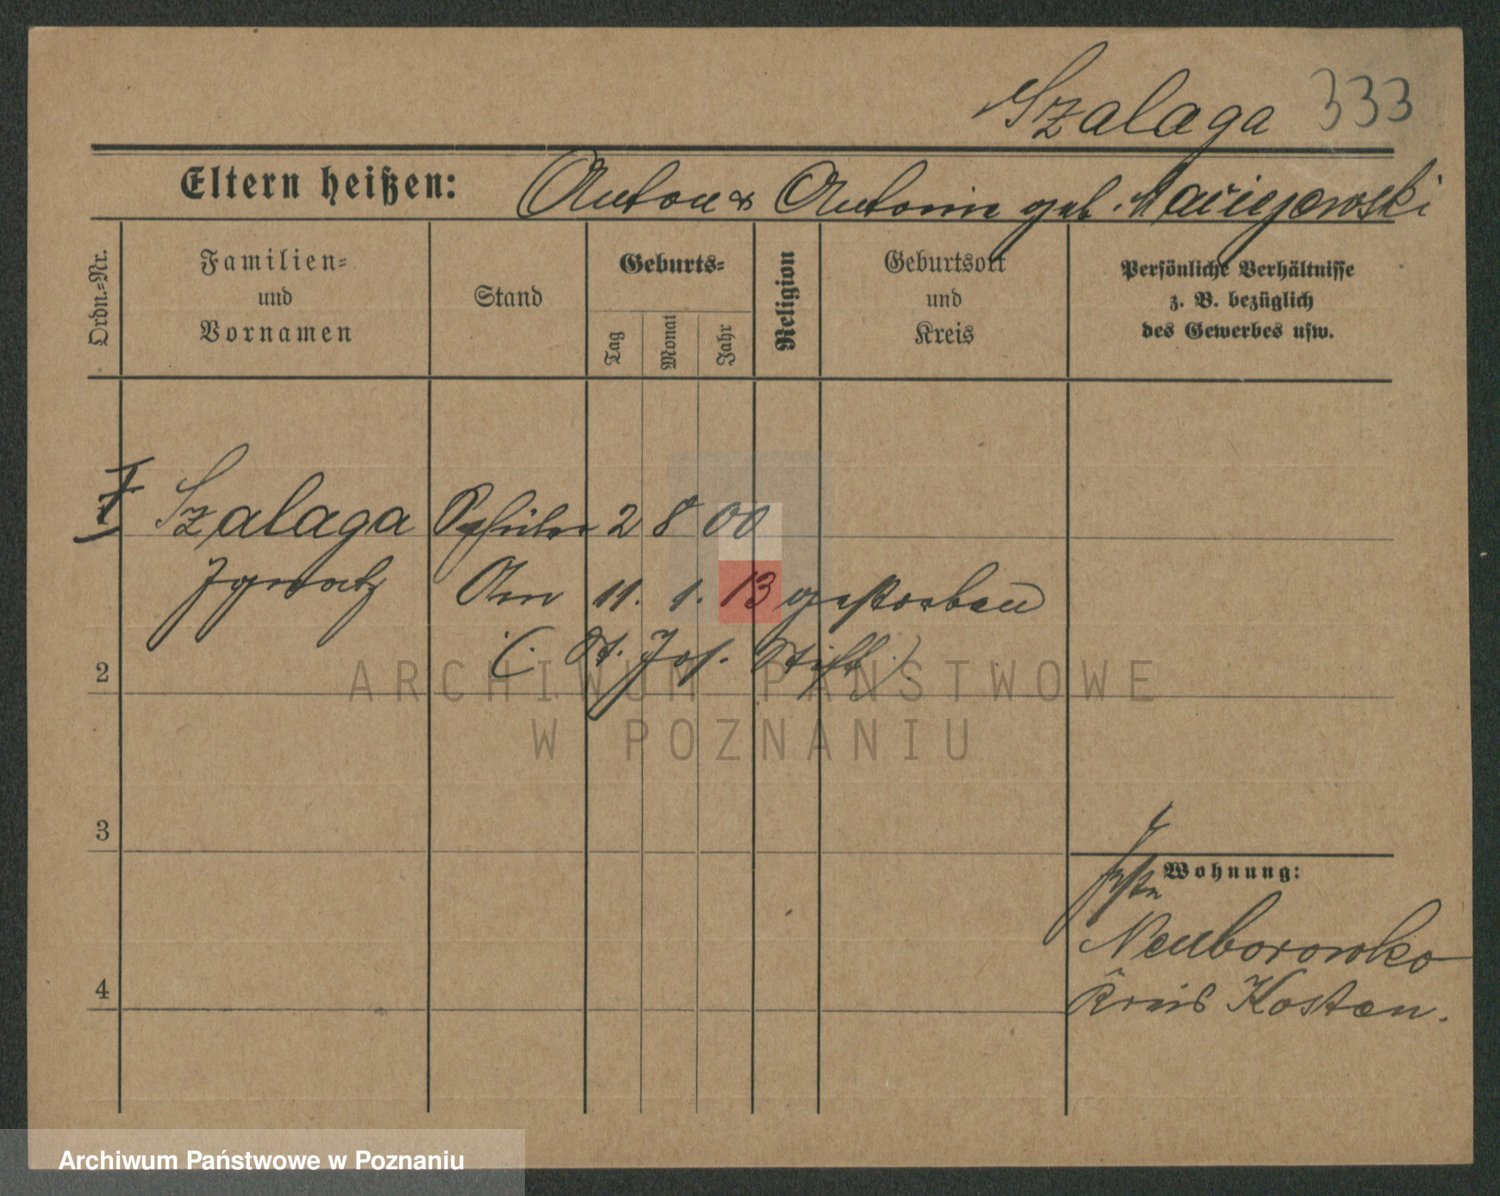 Szalaga 333
Eltern heißen: Anton & Antonie geb. Maciejewski
Ordn.-Nr.
Familien-
und
Vornamen
Stand
Geburts-
Tag
Monat
Jahr
Religion
Geburtsort
und
Kreis
Persönliche Verhältnisse
z. B. bezüglich
des Gewerbes usw.
Szalaga Schüler 2 8 00
Ignatz Am 11. 1. 13 gestorben
(: St. Jos. Stift :)
2
ARCHIWUM PAŃSTWOWE
W POZNANIU
3
Wohnung:
Neuborowko
4
Kreis Kosten.
Archiwum Państwowe w Poznaniu